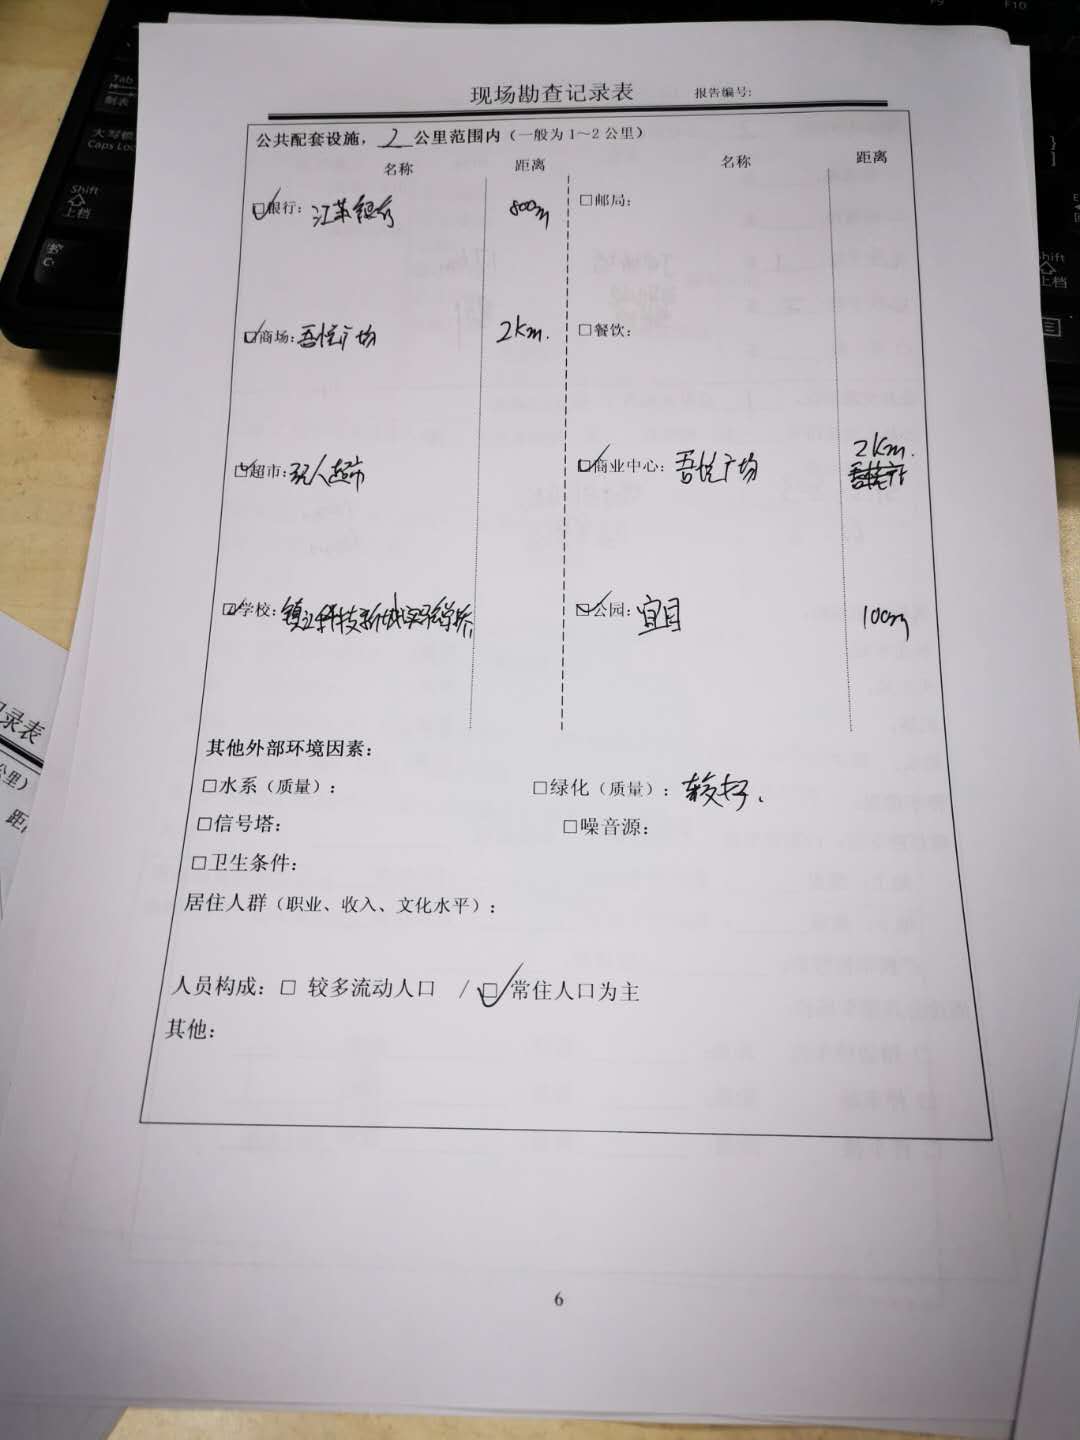 现场勘查记录表 报告编号:
公共配套设施， 2 公里范围内（一般为1～2公里）
名称 距离 名称 距离
☑银行: 江苏银行 800m □邮局:
☑商场: 吾悦广场 2km. □餐饮:
2km.
☑超市: 超市 ☑商业中心: 吾悦广场
☑学校: 镇江科技新城实验学校 ☑公园: 宜园 100m
其他外部环境因素:
□水系（质量）: □绿化（质量）: 较好.
□信号塔: □噪音源:
□卫生条件:
居住人群（职业、收入、文化水平）:
人员构成: □ 较多流动人口 / ☑常住人口为主
其他:
6
Tab
大写锁
Caps Loc
Shift
上档
F10
录表
公里）